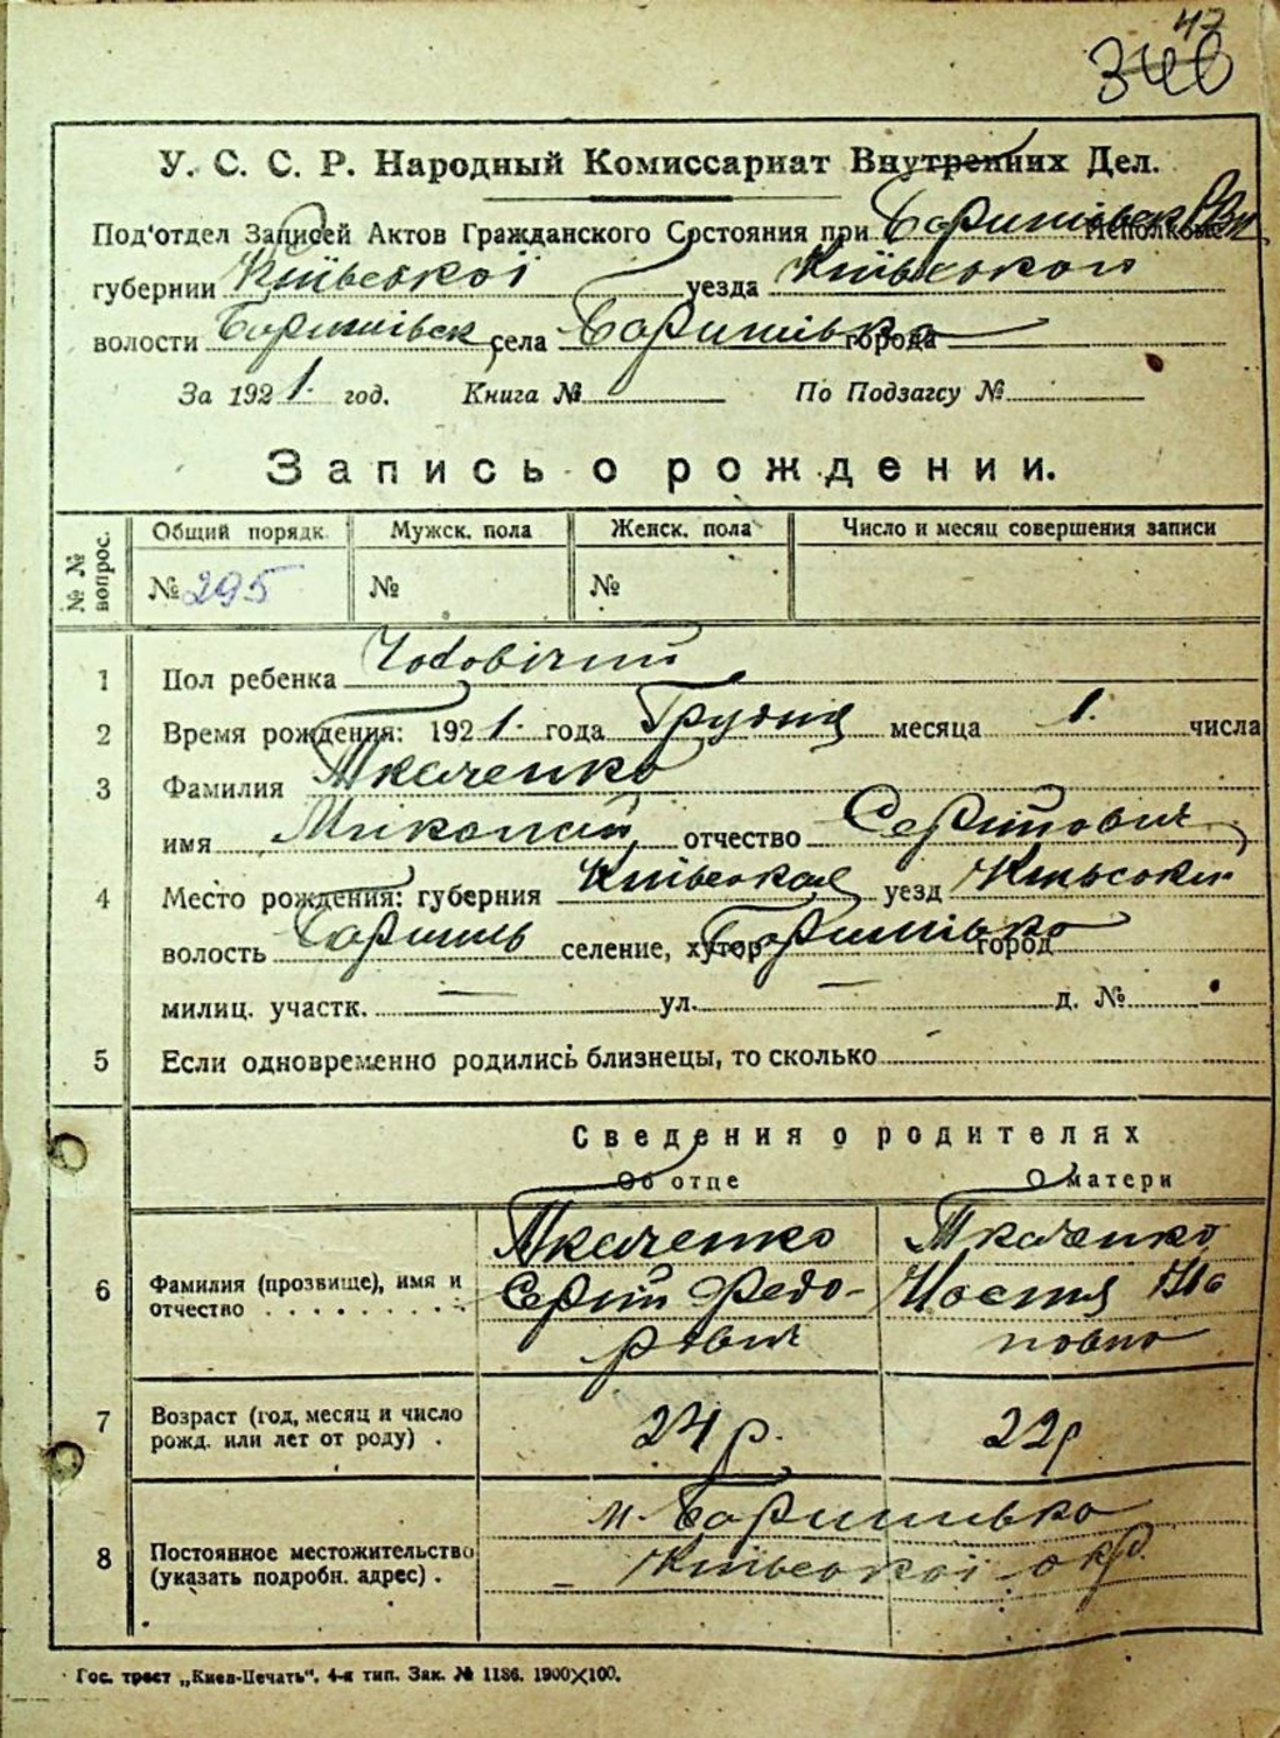 47
346
У. С. С. Р. Народный Комиссариат Внутренних Дел.
Под'отдел Записей Актов Гражданского Состояния при Баришівськ Исполкоме
губернии Київської уезда Київського
волости Баришівськ села Баришівка города
За 1921. год. Книга № По Подзагсу №
Запись о рождении.
№№ вопрос. Общий порядк. Мужск. пола Женск. пола Число и месяц совершения записи
№ 295 № №
1 Пол ребенка Чоловічий
2 Время рождения: 1921. года Грудня месяца 1. числа
3 Фамилия Ткаченко
имя Миколай отчество Сергійович
4 Место рождения: губерния Київська уезд
волость селение, хутор Баришівка город
милиц. участк. — ул. — д. №
5 Если одновременно родились близнецы, то сколько
Сведения о родителях
Об отце О матери
Ткаченко Ткаченко
6 Фамилия (прозвище), имя и отчество Сергій Федо- Настя
рович
7 Возраст (год, месяц и число рожд. или лет от роду) . 24 р. 22 р
м. Баришівка
8 Постоянное местожительство (указать подробн. адрес) . Київської окр.
Гос. трест „Киев-Печать". 4-я тип. Зак. № 1186. 1900×100.